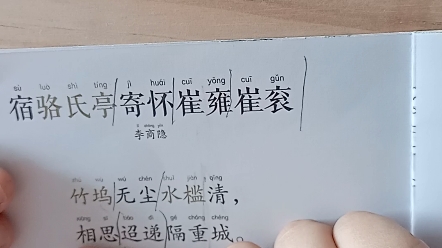 sù luò shì tíng jì huái cuī yōng cuī gǔn
宿骆氏亭寄怀崔雍崔衮
李商隐
zhú wù wú chén shuǐ jiàn qīng
竹坞无尘水槛清，
xiāng sī tiáo dì gé chóng chéng
相思迢递隔重城。